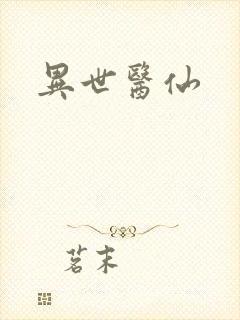 異世醫仙
茗末